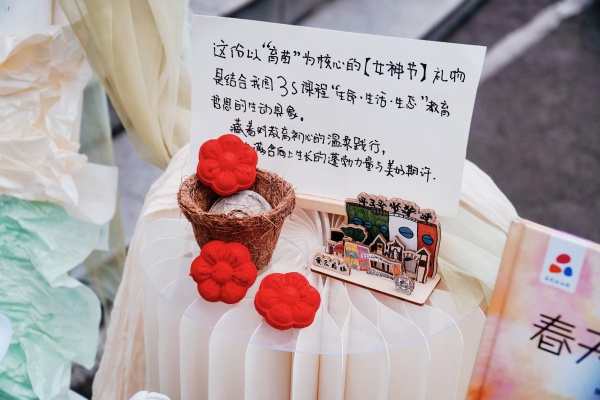 这份以“育苗”为核心的【女神节】礼物
是结合我园3S课程“生命·生活·生态”教育
哲思的生动具象。
藏着对教育初心的温柔践行，
藏含向上生长的蓬勃力量与美好期许.
春天